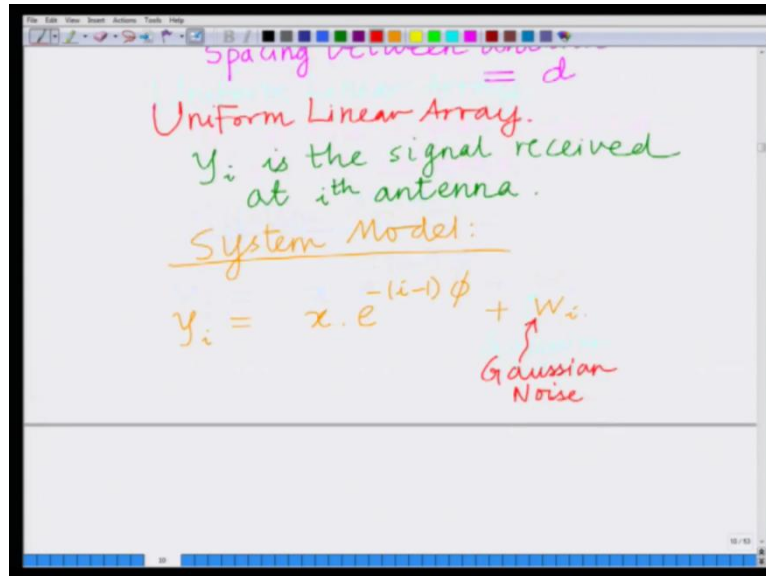 File Edit View Insert Actions Tools Help
Spacing between
= d
Uniform Linear Array.
y_i is the signal received
at i^th antenna.
System Model:
y_i = x. e^{-(i-1)ϕ} + w_i.
Gaussian
Noise
10